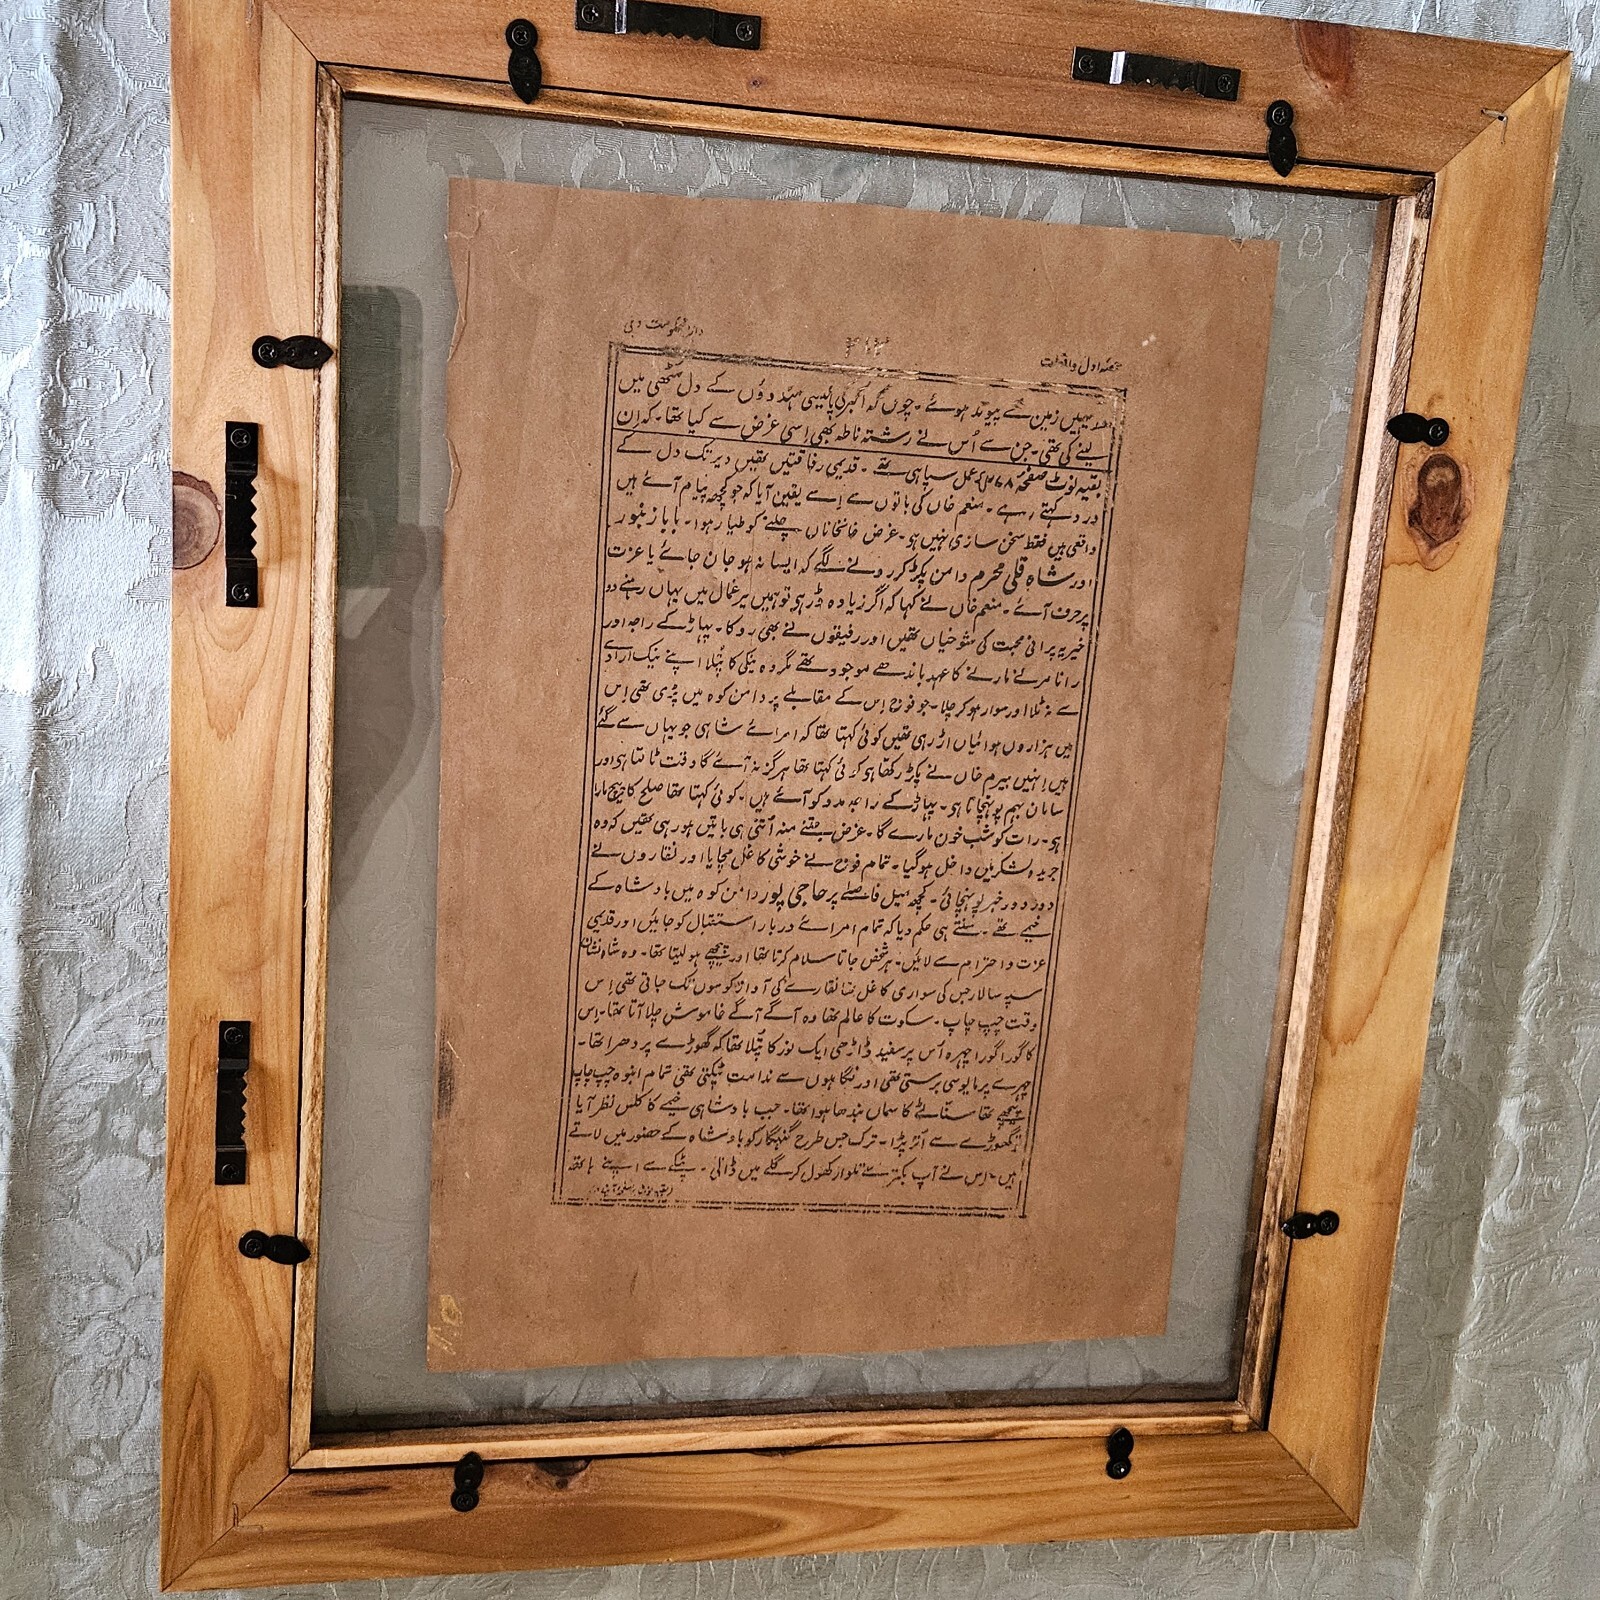 حصہ اول واقعات ۴۱۲ دارالحکومت دہلی
یہیں زمین سے پیوند ہوئے۔ چوں کہ اکبر کی پالیسی ہندوؤں کے دل مٹھی میں
لینے کی تھی۔ جن سے اُس نے رشتہ ناطہ بھی اِسی غرض سے کیا تھا۔ کہ اِن
بقیہ نوٹ صفحہ عمل سپاہی تھے۔ قدیمی رفاقتیں تھیں دیر تک دل کے
درد کہتے رہے۔ منعم خاں کی باتوں سے اِسے یقین آیا کہ جو کچھ پیام آئے ہیں
واقعی ہیں فقط سخن سازی نہیں ہو۔ غرض خانخاناں چلنے کو طیار ہوا۔ بابا زنبور
اور شاہ قلی محرم دامن پکڑ کر رونے لگے کہ ایسا نہ ہو جان جائے یا عزت
پر حرف آئے۔ منعم خاں نے کہا کہ اگر زیادہ ڈر ہی تو ہمیں یرغمال میں یہاں رہنے دو
خیر یہ پرانی محبت کی شوخیاں تھیں اور رفیقوں نے بھی روکا۔ پہاڑ کے راجہ اور
رانا مرنے مارنے کا عہد باندھے موجود تھے مگر وہ نیکی کا پُتلا اپنے نیک ارادے
سے نہ ٹلا اور سوار ہو کر چلا۔ جو فوج اِس کے مقابلے پر دامن کوہ میں پڑی تھی اِس
میں ہزاروں ہوائیاں اڑ رہی تھیں کوئی کہتا تھا کہ امرائے شاہی جو یہاں سے گئے
ہیں اِنہیں بیرم خاں نے پکڑ رکھا ہو کوئی کہتا تھا ہرگز نہ آئے گا وقت ٹالتا ہو اور
سامان بہم پونہچاتا ہو۔ پہاڑ کے راجہ مدد کو آئے ہیں۔ کوئی کہتا تھا صلح کا پیچ مارا
ہو۔ رات کو شب خون مارے گا۔ غرض جتنے منہ اُتنی ہی باتیں ہو رہی تھیں کہ وہ
جریدہ لشکر میں داخل ہو گیا۔ تمام فوج نے خوشی کا غل مچایا اور نقاروں نے
دور دور خبر پونہچائی۔ کچھ میل فاصلے پر حاجی پور دامن کوہ میں بادشاہ کے
خیمے تھے۔ سنتے ہی حکم دیا کہ تمام امرائے دربار استقبال کو جائیں اور قدیمی
عزت و احترام سے لائیں۔ ہر شخص جاتا سلام کرتا تھا اور پیچھے ہو لیتا تھا۔ وہ شاہ نشان
سپہ سالار جس کی سواری کا غل نقارے کی آواز کوسوں تک جاتی تھی اِس
وقت چپ چاپ۔ سکوت کا عالم تھا وہ آگے آگے خاموش چلا آتا تھا۔ اِس
کا گورا گورا چہرہ اُس پر سفید ڈاڑھی ایک نور کا پُتلا تھا کہ گھوڑے پر دھرا تھا۔
چہرے پر مایوسی برستی تھی اور نگاہوں سے ندامت ٹپکتی تھی تمام انبوہ چپ چاپ
پیچھے تھا سناٹے کا سماں بندھا ہوا تھا۔ جب بادشاہی خیمے کا کلس نظر آیا
گھوڑے سے اُتر پڑا۔ ترک جس طرح گنہگار کو بادشاہ کے حضور میں لاتے
ہیں۔ اس نے آپ بکتر سے تلوار کھول کر گلے میں ڈالی۔ پٹکے سے اپنے ہاتھ